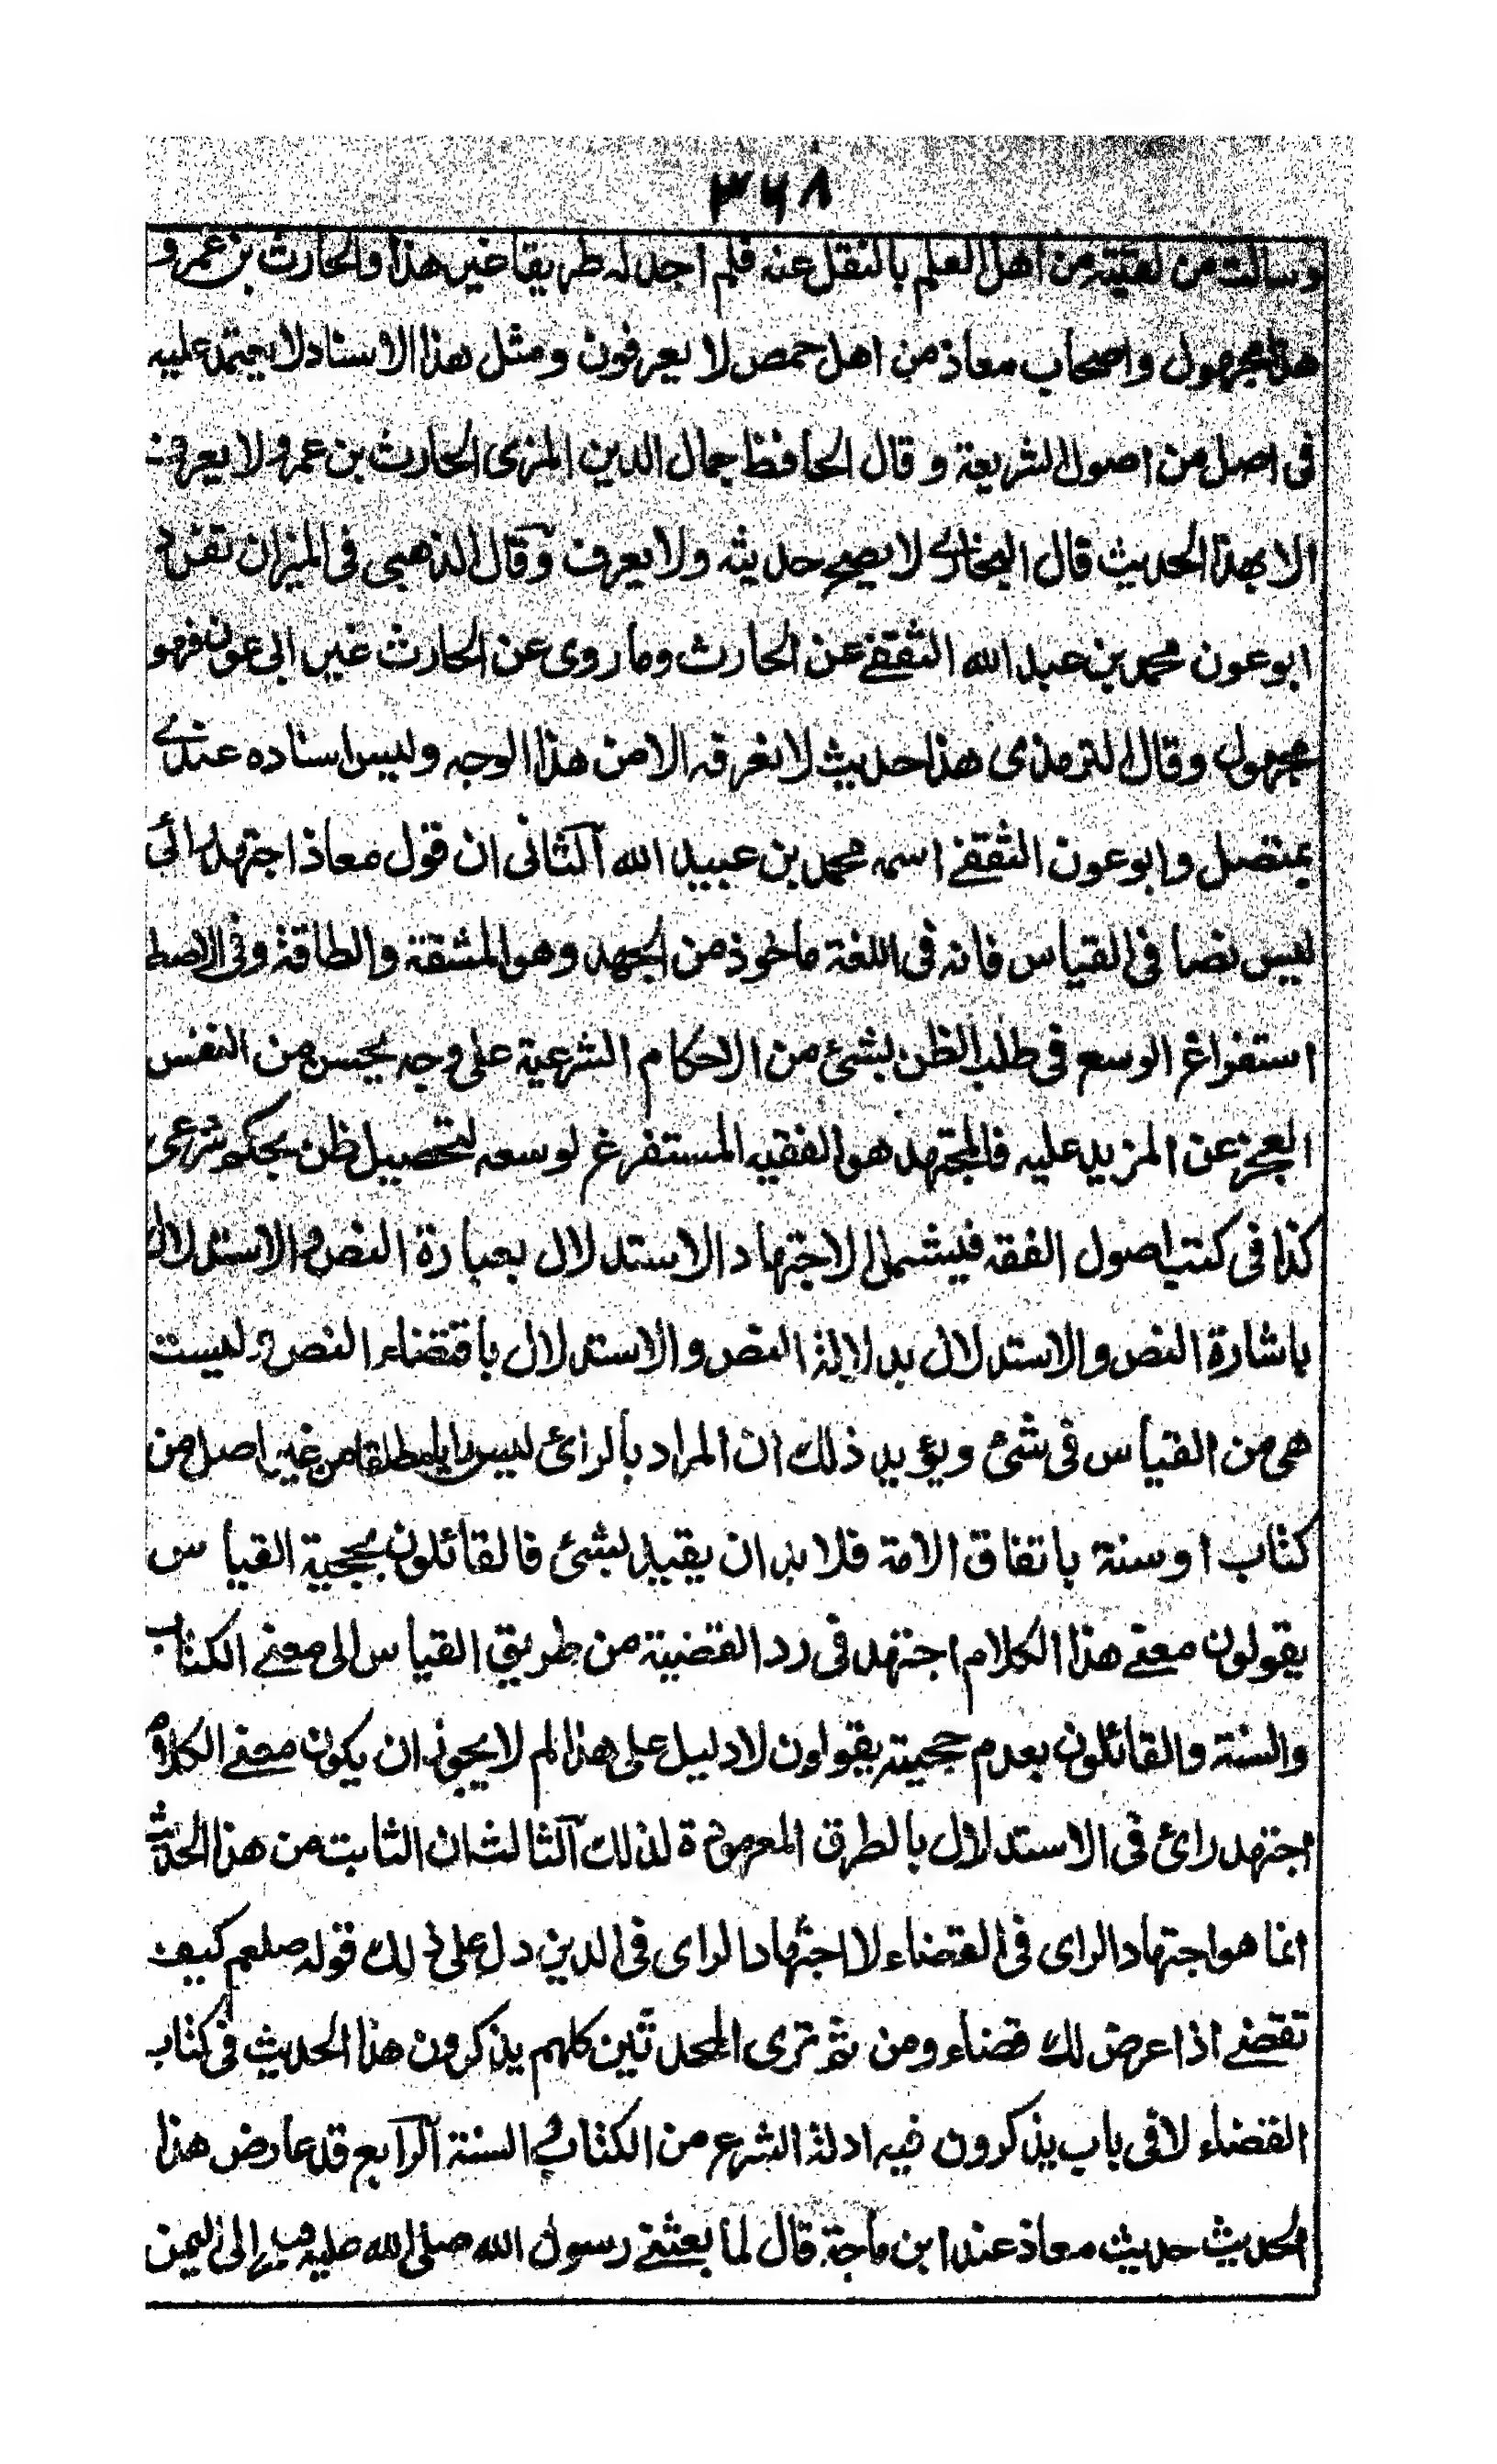 ٣٦٨
وسالت من لقيته من اهل العلم بالنقل عنه فلم اجد له طريقا غير هذا والحارث بن عمرو
هذا مجهول واصحاب معاذ من اهل حمص لا يعرفون ومثل هذا الاسناد لا يعتمد عليه
فى اصل من اصول الشريعة وقال الحافظ جمال الدين المزى الحارث بن عمرو لا يعرف
الا بهذا الحديث قال البخارى لا يصح حديثه ولا يعرف وقال الذهبى فى الميزان تفرد
ابو عون محمد بن عبد الله الثقفے عن الحارث وما روى عن الحارث غير ابى عون فهو
مجهول وقال الترمذى هذا حديث لا نعرفه الا من هذا الوجه وليس اسناده عندے
بمتصل وابو عون الثقفے اسمه محمد بن عبيد الله آلثانى ان قول معاذ اجتهد رائى
ليس نصا فى القياس فانه فى اللغة ماخوذ من الجهد وهو المشقة والطاقة وفى الاصط
استفراغ الوسع فى طلب الظن بشئ من الاحكام الشرعية على وجه يحس من النفس
العجز عن المزيد عليه فالمجتهد هو الفقيه المستفرغ لوسعه لتحصيل ظن بحكم شرعى
كذا فى كتب اصول الفقه فيشمل الاجتهاد الاستدلال بعبارة النص والاستدلال
باشارة النص والاستدلال بدلالة النص والاستدلال باقتضاء النص وليست
هى من القياس فى شئ ويؤيد ذلك ان المراد بالرائ ليس رايا مطلقا من غير اصل من
كتاب او سنة باتفاق الامة فلا بد ان يقيد بشئ فالقائلون بحجية القياس
يقولون معنے هذا الكلام اجتهد فى رد القضية من طريق القياس الى معنے الكتاب
والسنة والقائلون بعدم حجيته يقولون لا دليل على هذا لم لا يجوز ان يكون معنے الكلام
اجتهد رائ فى الاستدلال بالطرق المعروفة لذلك آلثالث ان الثابت من هذا الحديث
انما هو اجتهاد الراى فى القضاء لا اجتهاد الراى فى الدين دل على ذلك قوله صلعم كيف
تقضے اذا عرض لك قضاء ومن ثم ترى المحدثين كلهم يذكرون هذا الحديث فى كتاب
القضاء لا فى باب يذكرون فيه ادلة الشرع من الكتاب والسنة آلرابع قد عارض هذا
الحديث حديث معاذ عند ابن ماجة قال لما بعثنے رسول الله صلى الله عليه وسلم الى اليمن